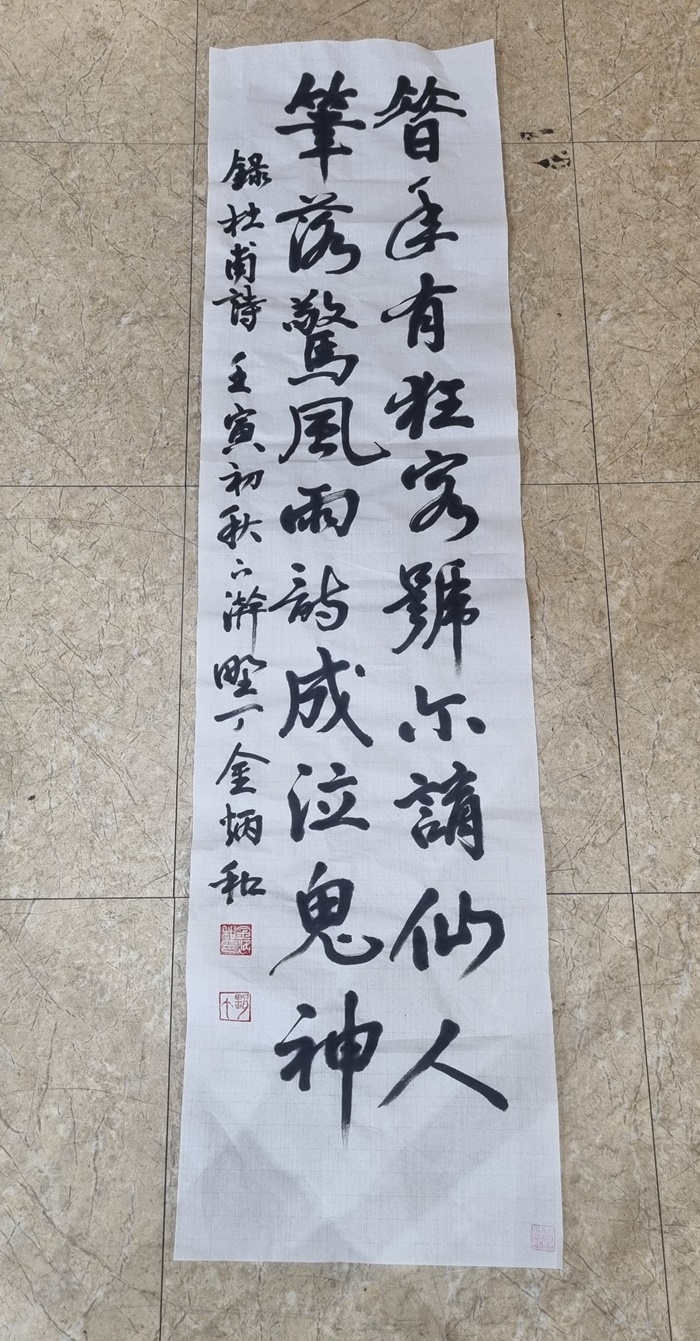 昔年有狂客號尔謫仙人
筆落驚風雨詩成泣鬼神
錄杜甫詩 壬寅初秋 丁金炳和